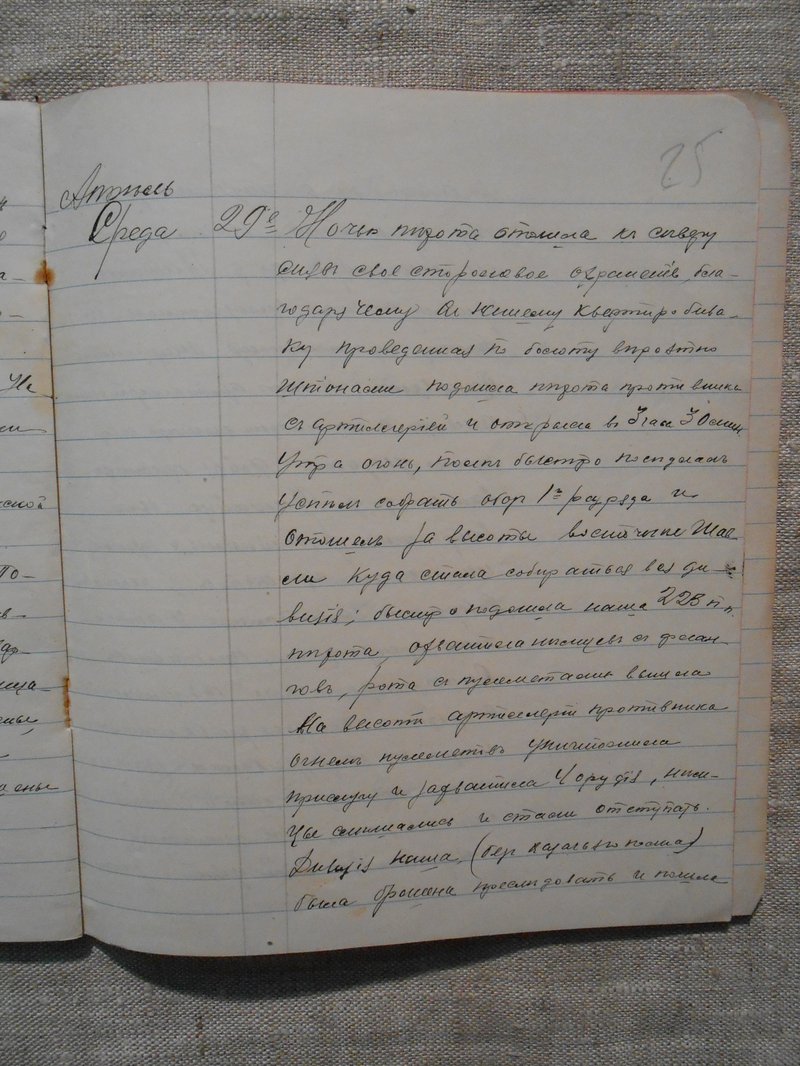 25
Апрель
Среда 29е Ночью пехота отошла къ северу
снявъ свое сторожевое охраненіе, бла-
годаря чему къ нашему квартиробива-
ку проведенная по болоту вероятно
шпіонами подошла пехота противника
съ артиллеріей и открыла въ 3 часа 30 мин.
утра огонь, полкъ быстро поседлалъ
успелъ собрать обозъ 1го разряда и
отошелъ за высоты восточнее Шав-
ли куда стала собираться вся ди-
визія; быстро подошла наша 228 п.п.
пехота, охватила немцевъ съ флан-
говъ, рота съ пулеметами вышла
на высоты артиллеріи противника
огнемъ пулеметовъ уничтожила
прислугу и захватила 4 орудія, нем-
цы смешались и стали отступать.
Дивизія наша, (без казачьяго полка)
была брошена преследовать и пошла